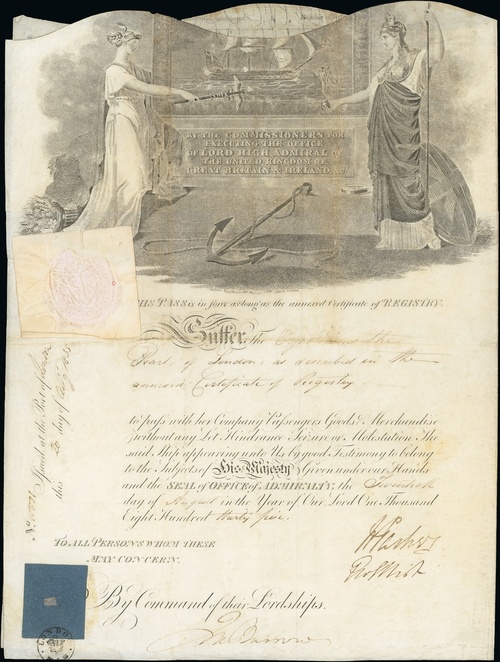 BY THE COMMISSIONERS FOR
EXECUTING THE OFFICE
OF LORD HIGH ADMIRAL OF
THE UNITED KINGDOM OF
GREAT BRITAIN & IRELAND &c.
THIS PASS is in force as long as the annexed Certificate of REGISTRY.
Suffer, The
Pearl, of London, as described in the
annexed Certificate of Registry
to pass with her Company Passengers Goods & Merchandise
without any Let Hindrance Seizure or Molestation The
said Ship appearing unto Us by good Testimony to belong
to the Subjects of His Majesty Given under our Hands
and the SEAL of OFFICE of ADMIRALTY, the Twentieth
day of August in the Year of Our Lord One Thousand
Eight Hundred thirty five.
TO ALL PERSONS WHOM THESE
MAY CONCERN.
By Command of their Lordships.
Issued at the Port of London
this 20 day of Aug 1835
LONDON